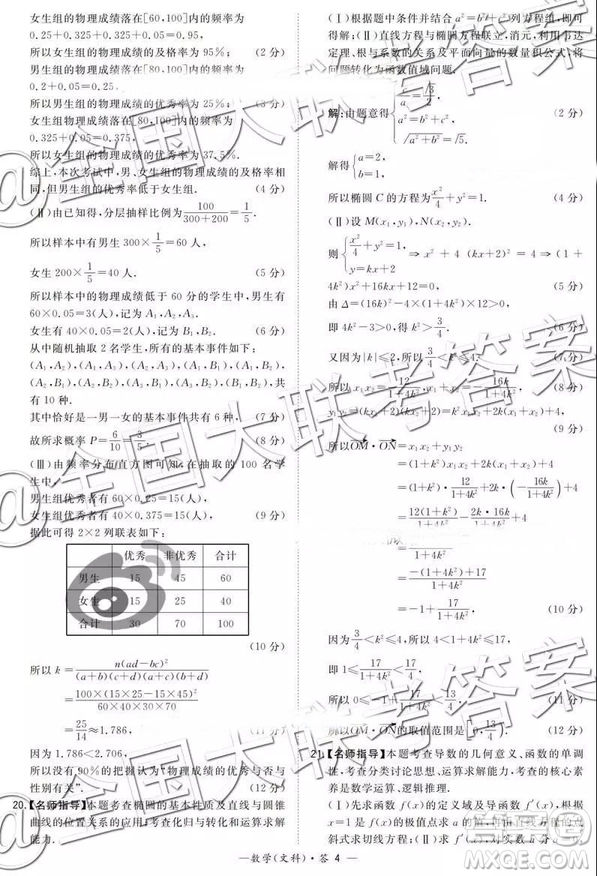 女生组的物理成绩落在[60,100]内的频率为
0.25+0.325+0.325+0.05=0.95,
所以女生组的物理成绩的及格率为 95%; (2 分)
男生组的物理成绩落在[80,100]内的频率为
0.2+0.05=0.25,
所以男生组的物理成绩的优秀率为 25%; (3 分)
女生组的物理成绩落在[80,100]内的频率为
0.325+0.05=0.375,
所以女生组的物理成绩的优秀率为 37.5%.
综上,本次考试中,男、女生组的物理成绩的及格率
相同,但男生组的优秀率低于女生组. (4 分)
(Ⅱ)由已知得,分层抽样方式100/(300+200)=1/5,
所以样本中的男生300×1/5=60人,
女生200×1/5=40人. (5 分)
所以样本中的物理成绩低于 60 分的学生中,男生有
60×0.05=3(人),记为 A₁,A₂,A₃,
女生有 40×0.05=2(人),记为 B₁,B₂. (6 分)
从中随机抽取 2 名学生,所有的基本事件如下:
(A₁,A₂),(A₁,A₃),(A₁,B₁),(A₁,B₂),(A₂,A₃),
(A₂,B₁),(A₂,B₂),(A₃,B₁),(A₃,B₂),(B₁,B₂),共
有 10 种.
其中恰好是一男一女的基本事件共有 6 种, (7 分)
故所求概率 P=6/10=3/5. (8 分)
(Ⅲ)由频率分布直方图可知,在抽取的 100 名学
生中,
男生组优秀者有 60×0.25=15(人),
女生组优秀者有 40×0.375=15(人), (9 分)
据此可得 2×2 列联表如下:
优秀 非优秀 合计
男生 15 45 60
女生 15 25 40
合计 30 70 100
(10 分)
所以 k=n(ad-bc)²/((a+b)(c+d)(a+c)(b+d))
=100×(15×25-15×45)²/(60×40×30×70)
=25/14≈1.786,
因为 1.786<2.706,
所以没有90%的把握认为“物理成绩的优秀与否与
性别有关”. (12 分)
20.【名师指导】本题考查椭圆的基本性质及直线与圆锥
曲线的位置关系的应用;考查化归与转化和运算求解
能力.
(Ⅰ)根据题中条件并结合 a²=b²+c² 列方程组,即可
得解;(Ⅱ)直线方程与椭圆方程联立,消元,利用韦达
定理、根与系数的关系及平面向量的数量积公式,将
问题转化为函数值域问题.
解:由题意得{c/a=√3/2, a²=b²+c², √(a²+b²)=√5. (2 分)
解得{a=2, b=1.
所以椭圆 C 的方程为x²/4+y²=1. (4 分)
(Ⅱ)设 M(x₁,y₁),N(x₂,y₂).
则{x²/4+y²=1, y=kx+2 ⇒x²+4(kx+2)²=4⇒(1+
4k²)x²+16kx+12=0, (5 分)
由 Δ=(16k)²-4(1+4k²)×12>0,
即 4k²-3>0,得 k²>3/4. (6 分)
又因为|k|≤2,所以3/4<k²≤4. (7 分)
所以 x₁x₂=12/(1+4k²),x₁+x₂=-16k/(1+4k²).
(9 分)
所以OM·ON=x₁x₂+y₁y₂
=(1+k²)x₁x₂+2k(x₁+x₂)+4
=(1+k²)·12/(1+4k²)+2k·(-16k/(1+4k²))+4
=12(1+k²)/(1+4k²)-2k·16k/(1+4k²)+4
=(16-4k²)/(1+4k²)
=(-(1+4k²)+17)/(1+4k²)
=-1+17/(1+4k²). (10 分)
因为3/4<k²≤4,所以 4<1+4k²≤17,
即 1≤17/(1+4k²)<17/4,
所以 0≤-1+17/(1+4k²)<13/4. (11 分)
所以OM·ON的取值范围是[0,13/4). (12 分)
21.【名师指导】本题考查导数的几何意义、函数的单调
性,考查转化思想、运算求解能力,考查的核心素
养是数学运算、逻辑推理.
(Ⅰ)先求函数 f(x)的定义域及导函数 f′(x),根据
x=1是 f(x)的极值点求 a 的值,再利用直线方程的点
斜式求切线方程;(Ⅱ)求 f′(x),对实数 a 分
—数学(文科)·答 4—
@全国大联考答案
@全国大联考答案
@全国大联考答案
MXQE.COM